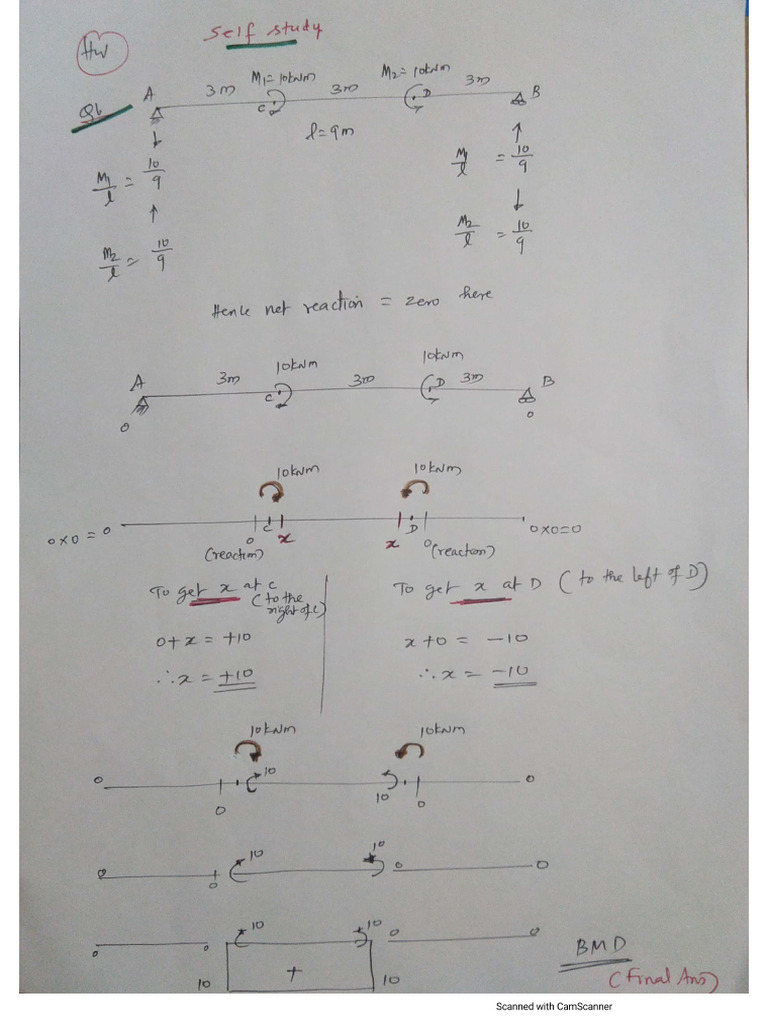 Self study
HW
M1=10kNm M2=10kNm
Q6 A 3m C 3m D 3m B
l=9m
M1/l = 10/9 M1/l = 10/9
M2/l = 10/9 M2/l = 10/9
Hence net reaction = zero here
10kNm 10kNm
A 3m C 3m D 3m B
0 0
10kNm 10kNm
0x0=0 C D 0x0=0
0 x x 0
(reaction) (reaction)
To get x at C (to the right of C)
0+x = +10
∴x = +10
To get x at D (to the left of D)
x+0 = -10
∴x = -10
10kNm 10kNm
0 10 0
0 10 0
10 10
0 0 0 0
0 0 10 10 0 0
10 + 10
BMD
(Final Ans)
Scanned with CamScanner